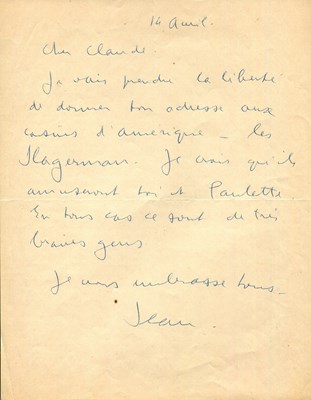 14 Avril.
Cher Claude.
Je vais prendre la liberté
de donner ton adresse aux
cousins d'amérique - les
Hagerman. Je crois qu'ils
amuseront toi et Paulette.
En tous cas ce sont de très
braves gens
Je vous embrasse tous-
Jean.